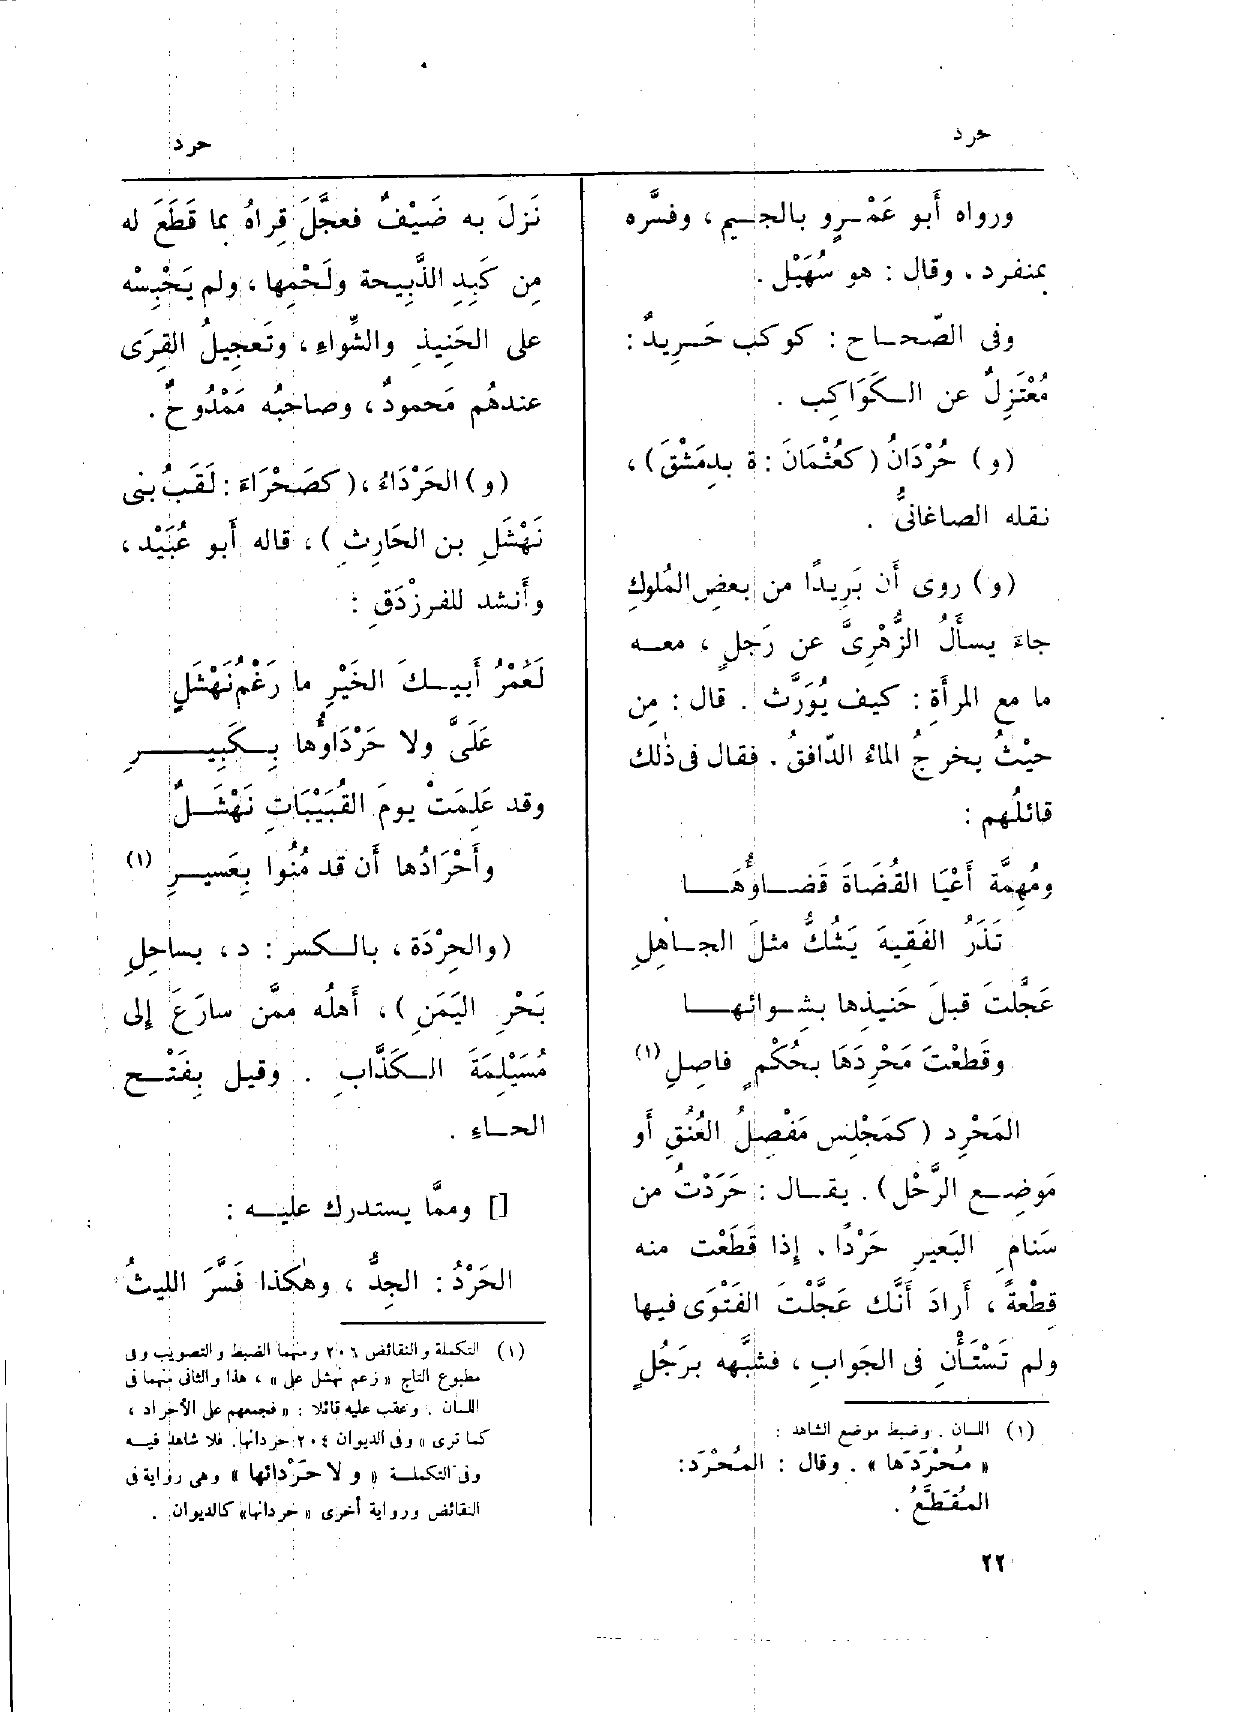 حرد
حرد
ورواه أَبو عَمْـرٍو بالجـيم ، وفسَّره
بمنفرد . وقال : هو سُهَيْل .
وفى الصّحـاح : كوكب حَـرِيدٌ :
مُعْتَزِلٌ عن الـكَوَاكِب .
(و) حُرْدَانُ (كعُثْمَانَ : ة بدِمَشْق) ،
نقله الصاغانىُّ .
(و) روى أَن بَرِيدًا من بعضِ المُلوكِ
جاءَ يسأَلُ الزُّهْرِىَّ عن رَجلٍ ، معـه
ما مع المرأَةِ : كيف يُوَرَّث . قال : مِن
حيْثُ يخرجُ الماءُ الدّافقُ . فقال فى ذٰلك
قائلُهم :
ومُهِمَّة أَعْيَا القُضَاةَ قَضـاؤُهَـا
تَذَرُ الفَقِيهَ يَشُكُّ مثلَ الجـاهِلِ
عَجَّلتَ قبلَ حَنيذِها بشـوائهـا
وقَطعْتَ مَحْرِدَهَا بحُكْمٍ فاصِلِ (١)
المَحْرِد (كمَجْلِس مَفْصِلُ العُنُقِ أَو
مَوضِـع الرَّحْل) . يقـال : حَرَدْتُ من
سَنامِ البَعيرِ حَرْدًا . إِذا قَطَعْت منه
قِطْعةً ، أَرادَ أَنَّك عَجَّلْتَ الفَتْوَى فيها
ولم تَسْتَأْنِ فى الجَوابِ ، فشبَّهه برَجُلٍ
(١) اللسان . وضبط موضع الشاهد :
« مُحْرَدَها » . وقال : المُحْرَد:
المُقَطَّعُ .
نَزلَ به ضَيْفٌ فعجَّلَ قِراهُ بما قَطَعَ له
مِن كَبِدِ الذَّبِيحة ولَحْمِها ، ولم يَحْبِسْه
على الحَنِيذِ والشِّواءِ ، وتَعجِيلُ القِرَى
عندهُم مَحمودٌ ، وصاحِبُه مَمْدُوحٌ .
(و) الحَرْدَاءُ ، (كصَحْرَاءَ : لَقَبُ بنى
نَهْشَلِ بن الحَارِثِ ) ، قاله أَبو عُبَيْد ،
وأَنشد للفرزْدَقِ :
لَعَمْرُ أَبيـك الخَيْرِ ما رَغْمُ نَهْشَلٍ
عَلَىَّ ولا حَرْدَاؤُها بِـكَبِيـــرِ
وقد عَلِمَتْ يومَ القُبَيْبَاتِ نَهْشَلٌ
وأَحْرَادُها أَن قد مُنُوا بِعَسيـرِ (١)
(والحِرْدَة ، بالـكسر : د ، بساحِلِ
بَحْرِ اليَمَنِ ) ، أَهلُه ممَّن سارَعَ إِلى
مُسَيْلِمَةَ الـكَذَّابِ . وقيل بفَتْـح
الحـاءِ .
[] وممَّا يستدرك عليـه :
الحَرْدُ : الجِدُّ ، وهٰكذا فَسَّرَ الليثُ
(١) التكملة والنقائض ٢٠٦ ومنهما الضبط والتصويب وفى
مطبوع التاج « زعم نهشل على » ، هذا والثانى منهما فى
اللسان . وعقب عليه قائلا : « فجمعهم على الأحراد ،
كما ترى » وفى الديوان ٢٠٤ حردانها. فلا شاهد فيـه
وفى التكملـة « ولا حَرْدائها » وهى رواية فى
النقائض ورواية أخرى « حردانها » كالديوان .
٢٢